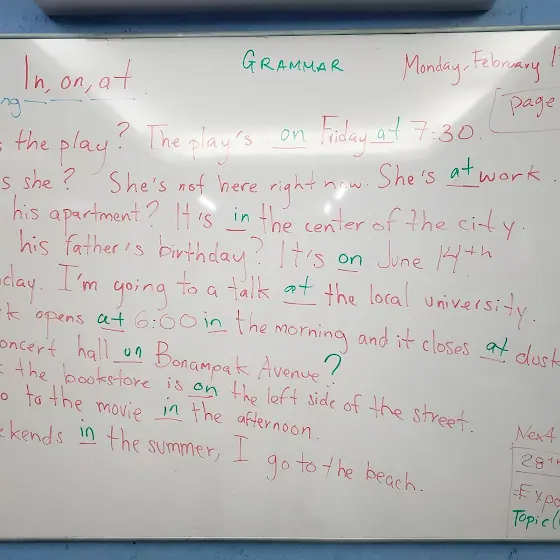 GRAMMAR
Monday, February 1
In, on, at.
page
the play? The play's on Friday at 7:30.
she? She's not here right now. She's at work.
his apartment? It's in the center of the city.
his father's birthday? It's on June 14th
I'm going to a talk at the local university.
opens at 6:00 in the morning and it closes at dusk
hall on Bonampak Avenue?
the bookstore is on the left side of the street.
to the movie in the afternoon.
in the summer, I go to the beach.
Next
28th
Expo
Topic(